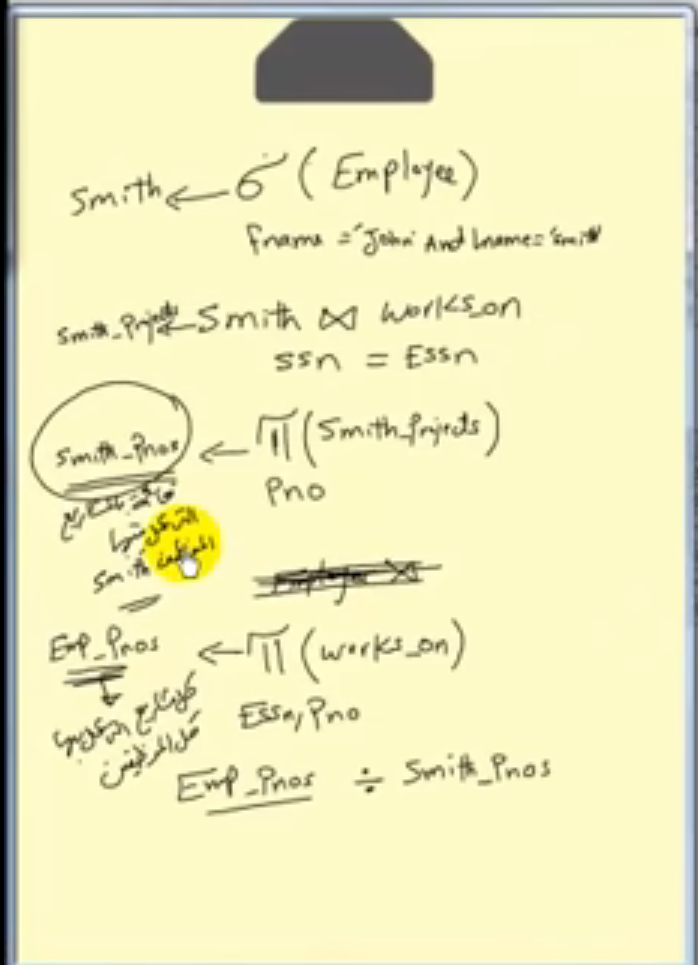 Smith ← σ (Employee)
Fname = 'John' And Lname = 'Smith'
Smith_Projects ← Smith ⋈ works_on
ssn = Essn
Smith_Pnos ← π (Smith_Projects)
Pno
قائمة بالمشاريع
التي عمل فيها
الموظف Smith
Emp_Pnos ← π (works_on)
Essn, Pno
كل المشاريع التي عمل بها
كل الموظفين
Emp_Pnos ÷ Smith_Pnos